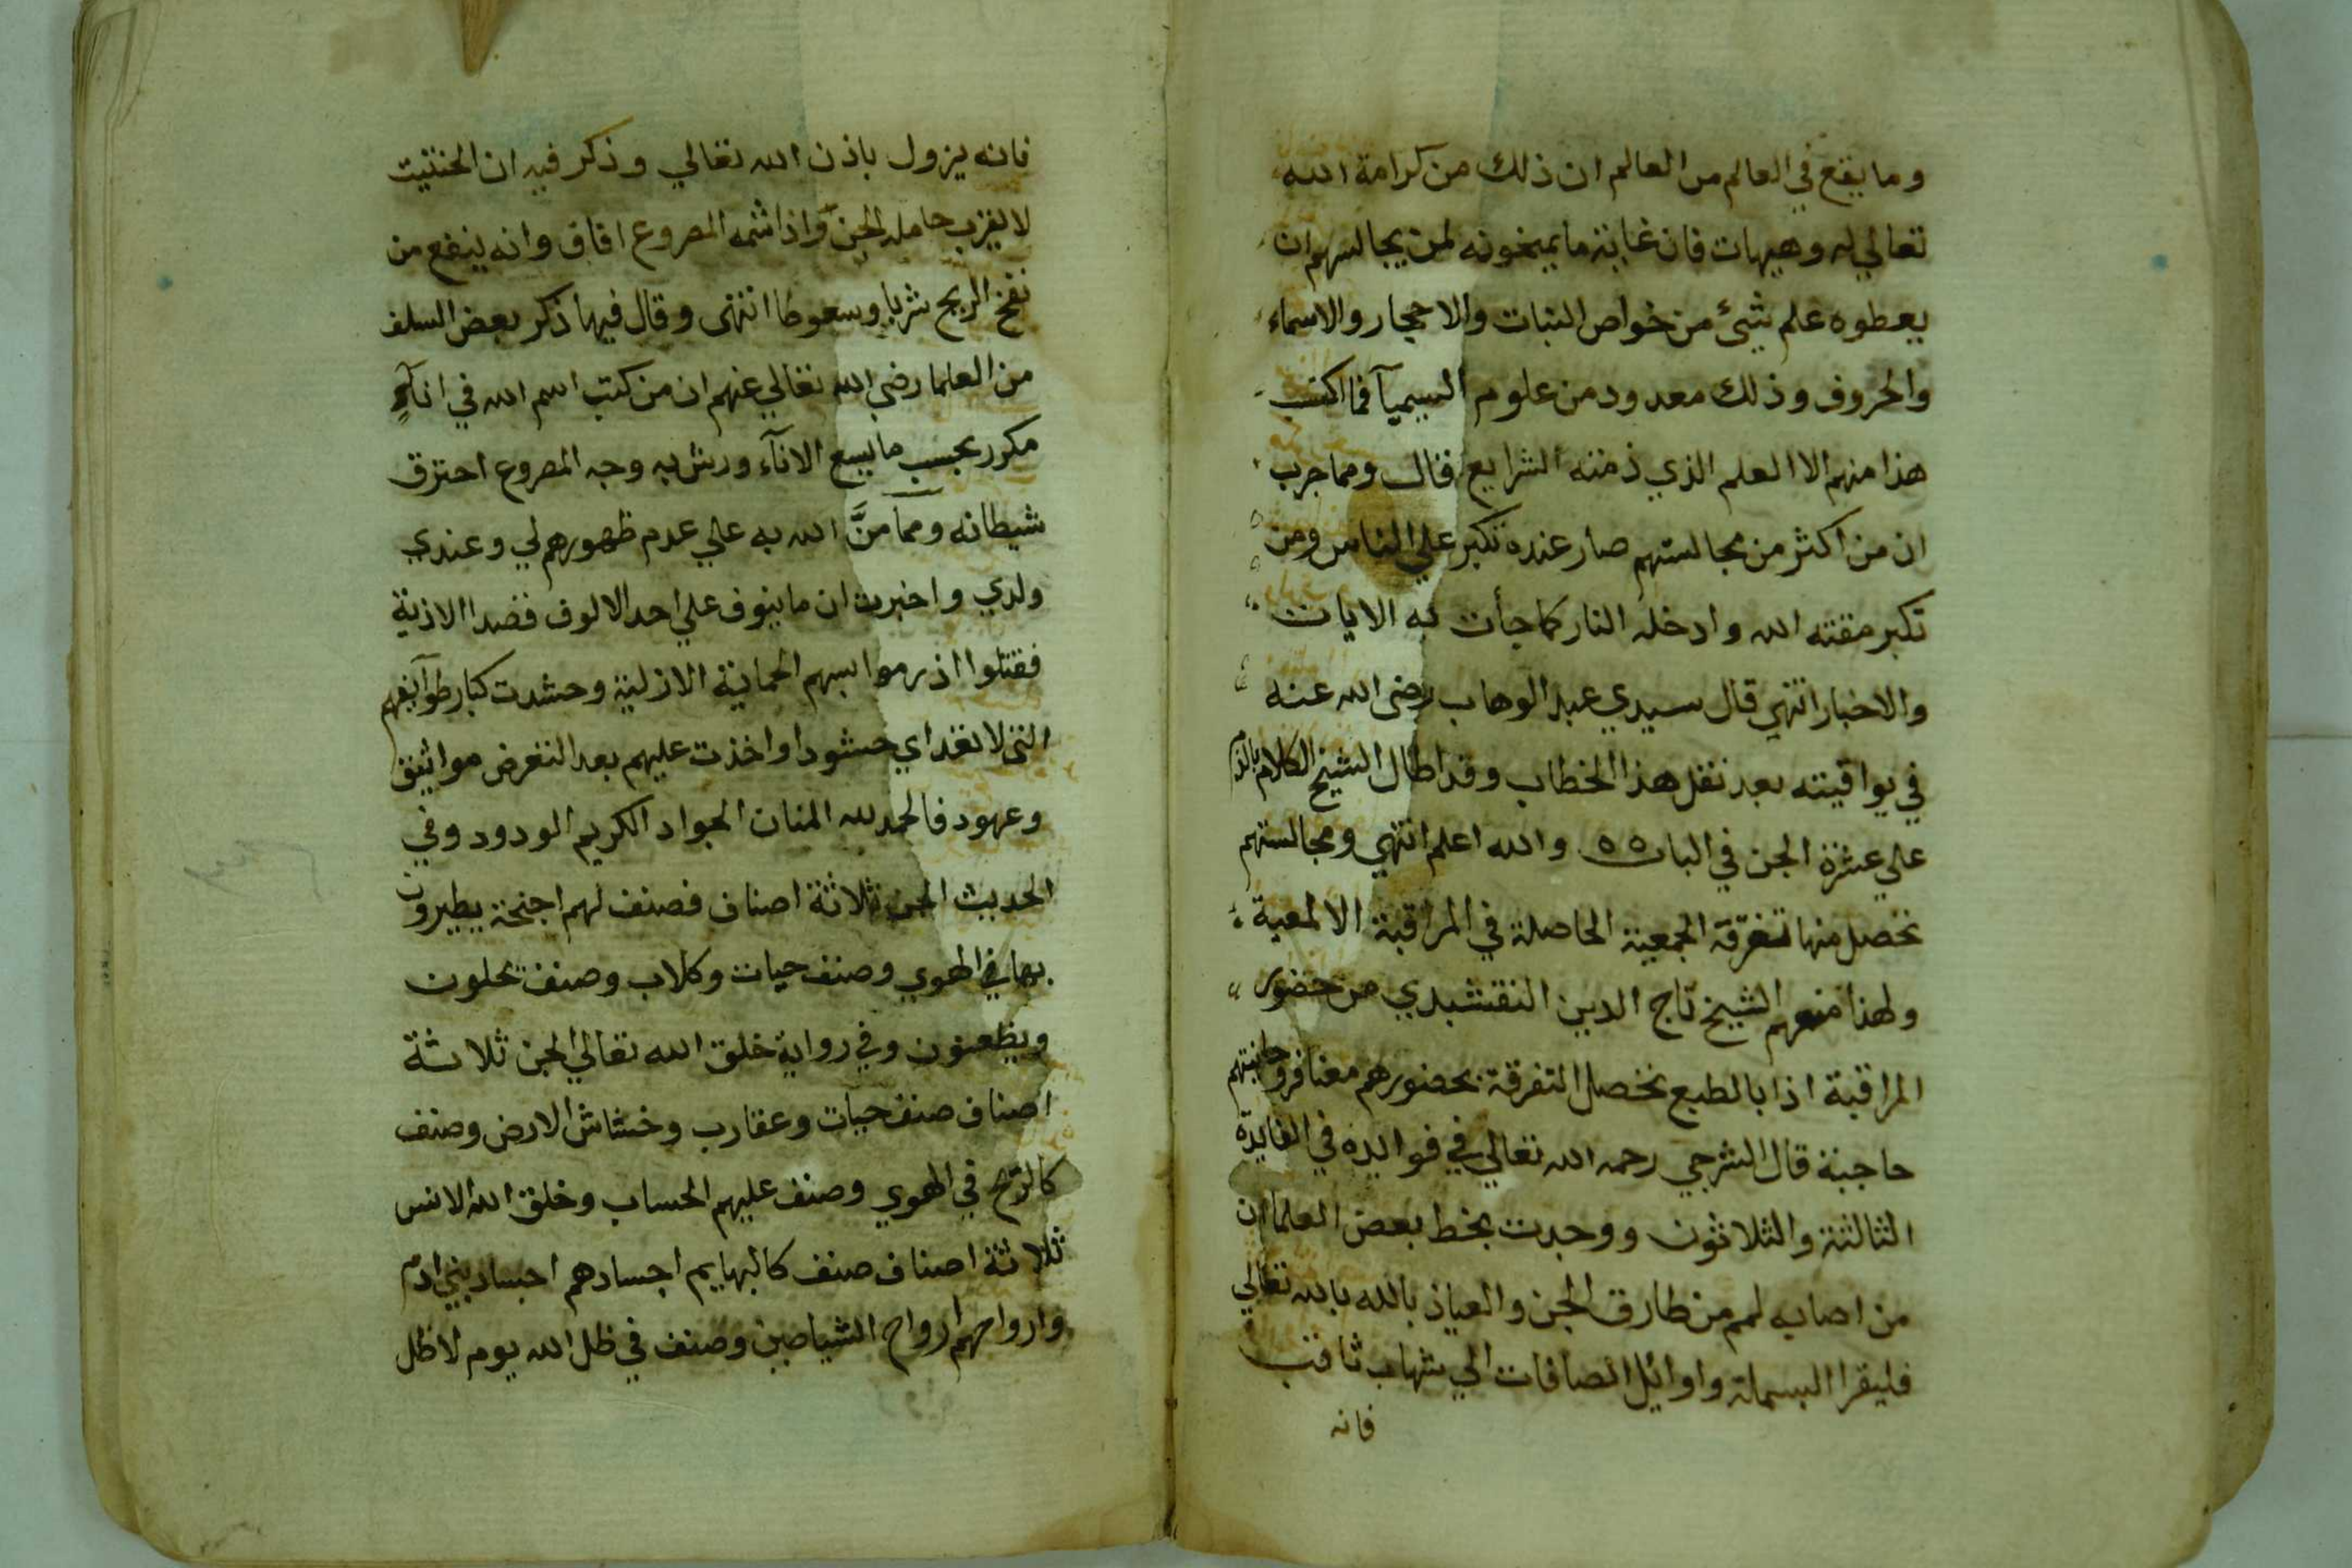 وما يقع في العالم من العالم ان ذلك من كرامة الله
تعالي له وهيهات فان غاية ما يمنحونه لمن يجالسهم ان
يعطوه علم شئ من خواص النبات والاحجار والاسماء
والحروف وذلك معدود من علوم السيميآ فما اكتسب
هذا منهم الا العلم الذي ذمته الشرايع قال ومما جرب
ان من اكثر من مجالستهم صار عنده تكبر علي الناس ومن
تكبر مقته الله وادخله النار كما جأت به الايات
والاخبار انتهي قال سيدي عبد الوهاب رضي الله عنه
في يواقيته بعد نقل هذا الخطاب وقد اطال الشيخ الكلام
علي عشرة الجن في الباب ٥٥ والله اعلم انتهي ومجالستهم
تحصل منها تفرقة الجمعية الحاصلة في المراقبة الالمعية
ولهذا منعهم الشيخ تاج الدين النقشبدي من حضور
المراقبة اذا بالطبع تحصل التفرقة بحضورهم معنا فروحانيتهم
حاجبة قال الشرجي رحمه الله تعالي في فوايده في الفايدة
الثالثة والثلاثون ووجدت بخط بعض العلما ان
من اصابه لمم من طارق الجن والعياذ بالله بالله تعالي
فليقرا البسملة واوائل الصافات الي شهاب ثاقب
فانه
فانه يزول باذن الله تعالي وذكر فيه ان الحنتيت
لا يقرب حامله الجن واذا شمه المصروع افاق وانه ينفع من
نفخ الريح شربا وسعوطا انتهى وقال فيها ذكر بعض السلف
من العلما رضي الله تعالي عنهم ان من كتب اسم الله في انآء
مكرر بحسب ما يسع الانآء ورش به وجه المصروع احترق
شيطانه ومما منَّ الله به علي عدم ظهورهم لي وعندي
ولدي واخبرت ان ما ينوف علي احد الالوف قصدا الاذية
فقتلوا اذ رموا بسهم الحماية الازلية وحشدت كبار طوآيفهم
التى لا تعد اي حشودا واخذت عليهم بعد التعرض مواثيق
وعهود فالحمد لله المنان الجواد الكريم الودود وفي
الحديث الجن ثلاثة اصناف فصنف لهم اجنحة يطيرون
بها في الهوي وصنف حيات وكلاب وصنف يحلون
ويظعنون وفي رواية خلق الله تعالي الجن ثلاثة
اصناف صنف حيات وعقارب وخشاش الارض وصنف
كالريح في الهوي وصنف عليهم الحساب وخلق الله الانس
ثلاثة اصناف صنف كالبهايم اجسادهم اجساد بني ادم
وارواحهم ارواح الشياطين وصنف في ظل الله يوم لا ظل